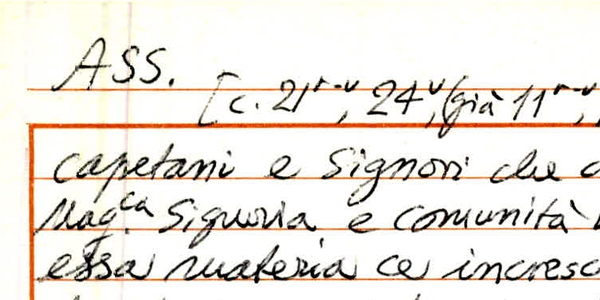 ASS.
[c. 21r-v, 24v, (già 11r-v,
capetani e Signori che
Magca Signoria e comunità
essa materia ce incresc